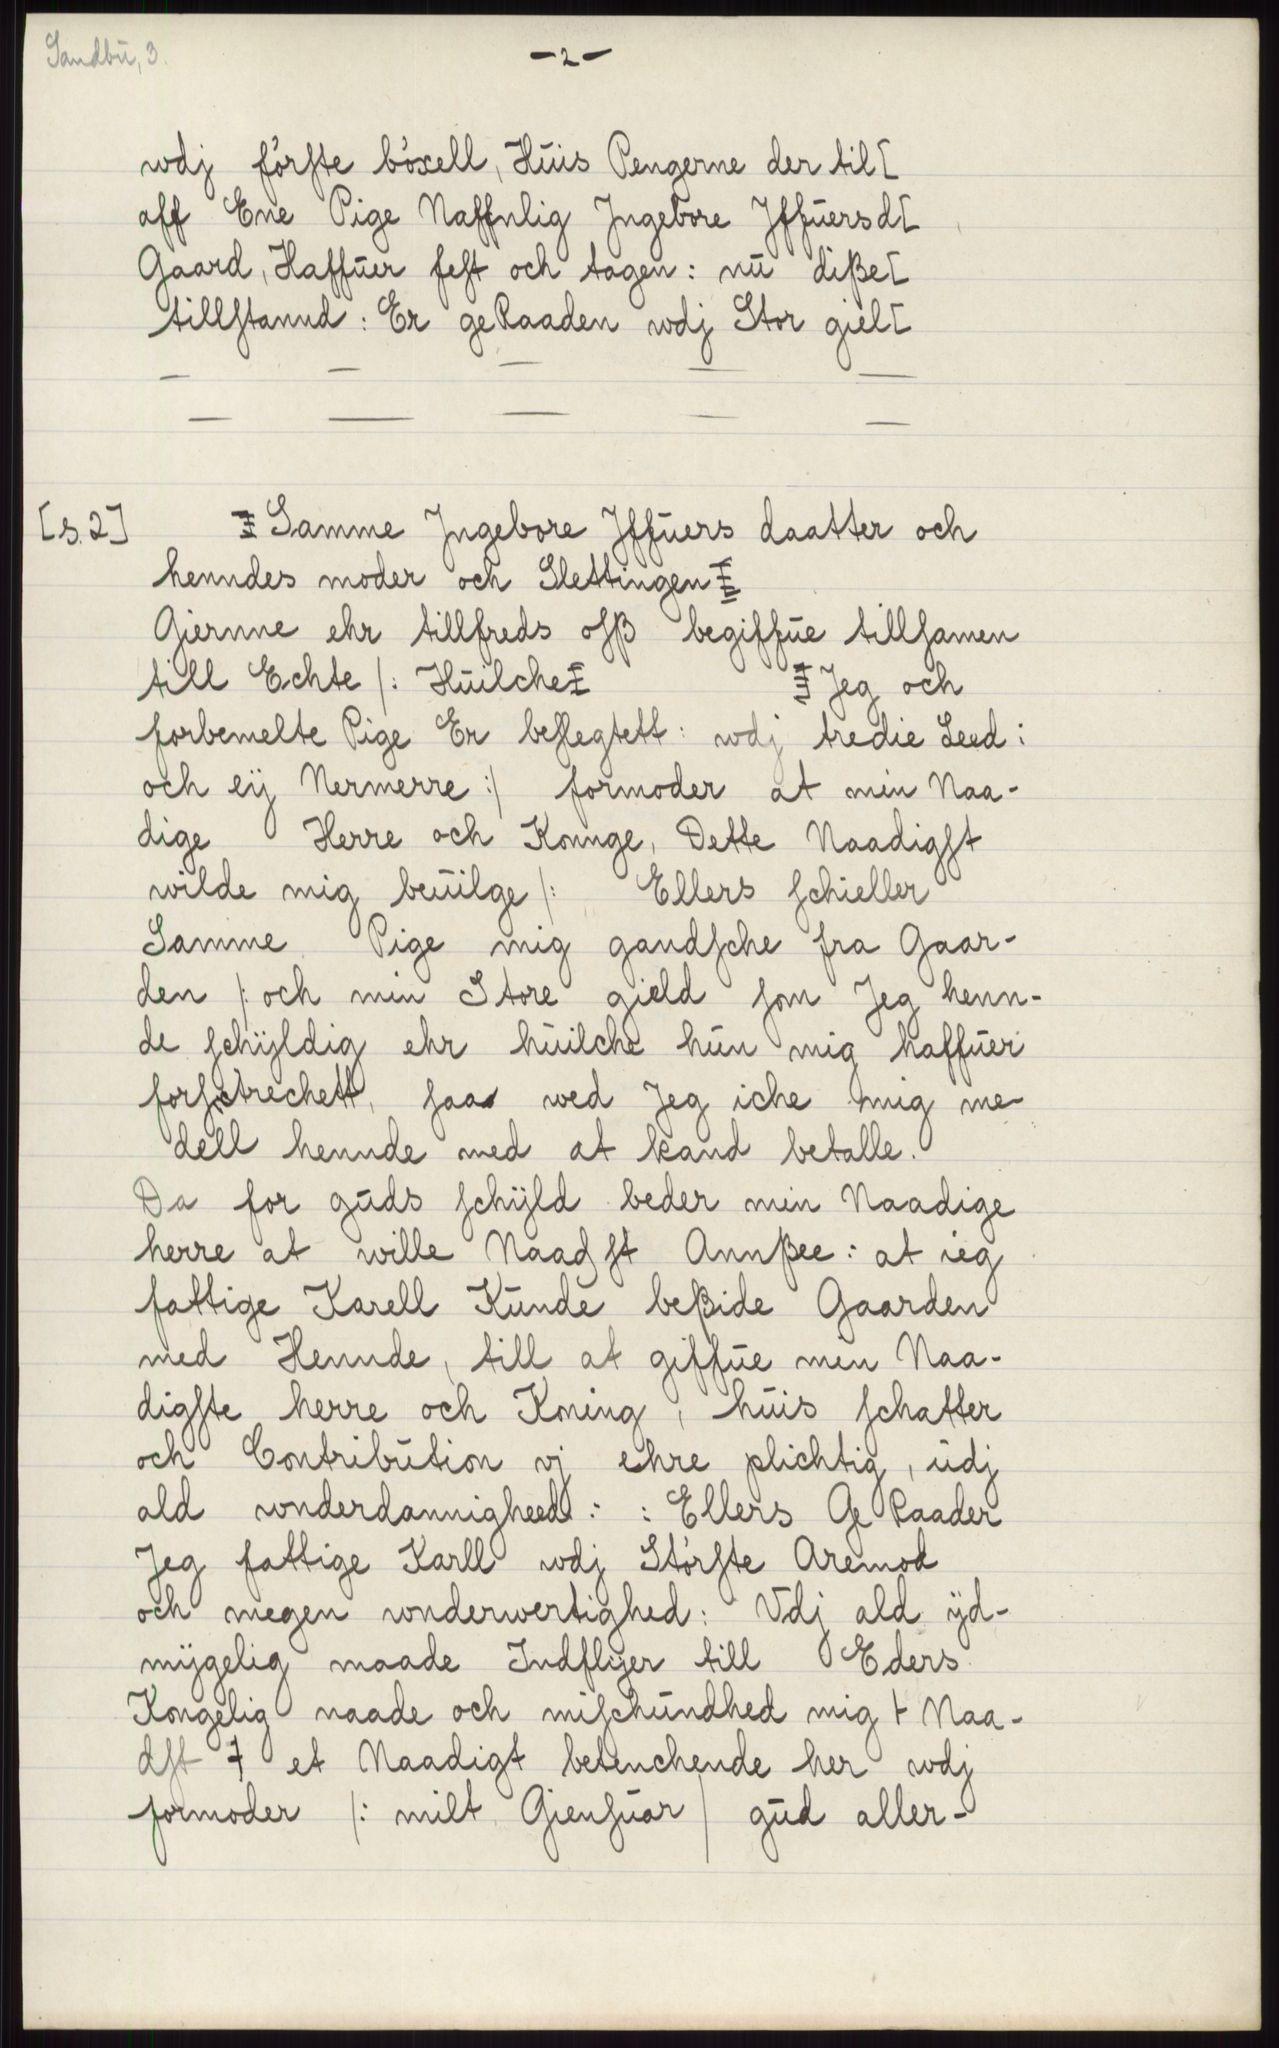 Sandbu, 3.
-2-
wdj förste böxell, Hŭis Pengerne der til[
aff Ene Pige Naffnlig Jngebore Jffŭersd[
Gaard, Haffŭer fest och tagen: nŭ diße[
tillstannd: Er geRaaden wdj Stor giel[
— — — — —
— — — — —
[s. 2] Samme Jngebore Jffŭers daatter och
henndes moder och Slettingen
Giernne ehr tillfreds osß begiffŭe tillsamen
till Echte /: Hŭilche Jeg och
forbemelte Pige Er beslegtett: wdj tredie Leed:
och eÿ Nermerre :/ formoder at min Naa-
dige Herre och Konnge, Dette Naadigst
wilde mig beŭilge /: Ellers schieller
Samme Pige mig gandsche fra Gaar-
den /: och min Store gield som Jeg henn-
de schÿldig ehr hŭilche hŭn mig haffŭer
forstrechett, saa wed Jeg iche mig me-
dell hennde med at kand betalle.
Da for gŭds schÿld beder min Naadige
herre at wille Naadst Annßee: at ieg
fattige Karell Kŭnde beßide Gaarden
med Hennde, till at giffŭe men Naa-
digste herre och Koning, hŭis schatter
och Contribŭtion vj ehre plichtig, ŭdj
ald wnderdannigheed: : Ellers GeRaader
Jeg fattige Karll wdj Störste Aremod
och megen wnderwertighed: Vdj ald ÿd-
mÿgelig maade Indflÿer till Eders
Kongelig naade och mischŭndhed mig + Naa-
dst + et Naadigt betenchende her wdj
formoder /: milt Giensŭar / gŭd aller-